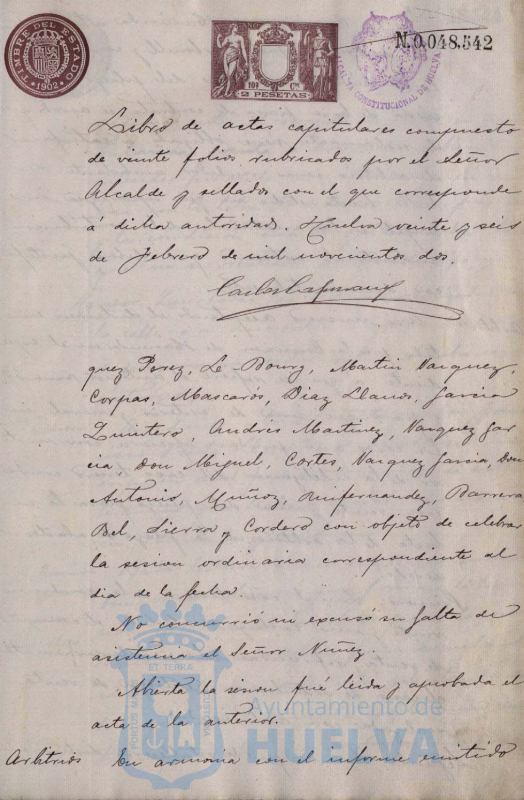 TIMBRE DEL ESTADO
1902
2 PESETAS
N.0.048.542
CONSTITUCIONAL DE HUELVA
Libro de actas capitulares compuesto
de veinte folios rubricados por el Señor
Alcalde y sellados con el que corresponde
á dicha autoridad. Huelva veinte y seis
de Febrero de mil novecientos dos.
quez Perez, Le Bourg, Martin Vazquez,
Corpas, Mascarós, Diaz Llanos, Garcia
Quintero, Andrés Martinez, Vazquez Gar
cia, Don Miguel, Cortes, Vazquez Garcia, Don
Antonio, Muñoz, Ruifernandez, Barrera
Bel, Sierra y Cordero con objeto de celebrar
la sesion ordinaria correspondiente al
dia de la fecha.
No concurrió ni excusó su falta de
asistencia el Señor Nuñez.
Abierta la sesion fué leida y aprobada el
acta de la anterior.
Arbitrios En armonia con el informe emitido
ET TERRÆ
PORTUS MARIS
Ayuntamiento de
HUELVA